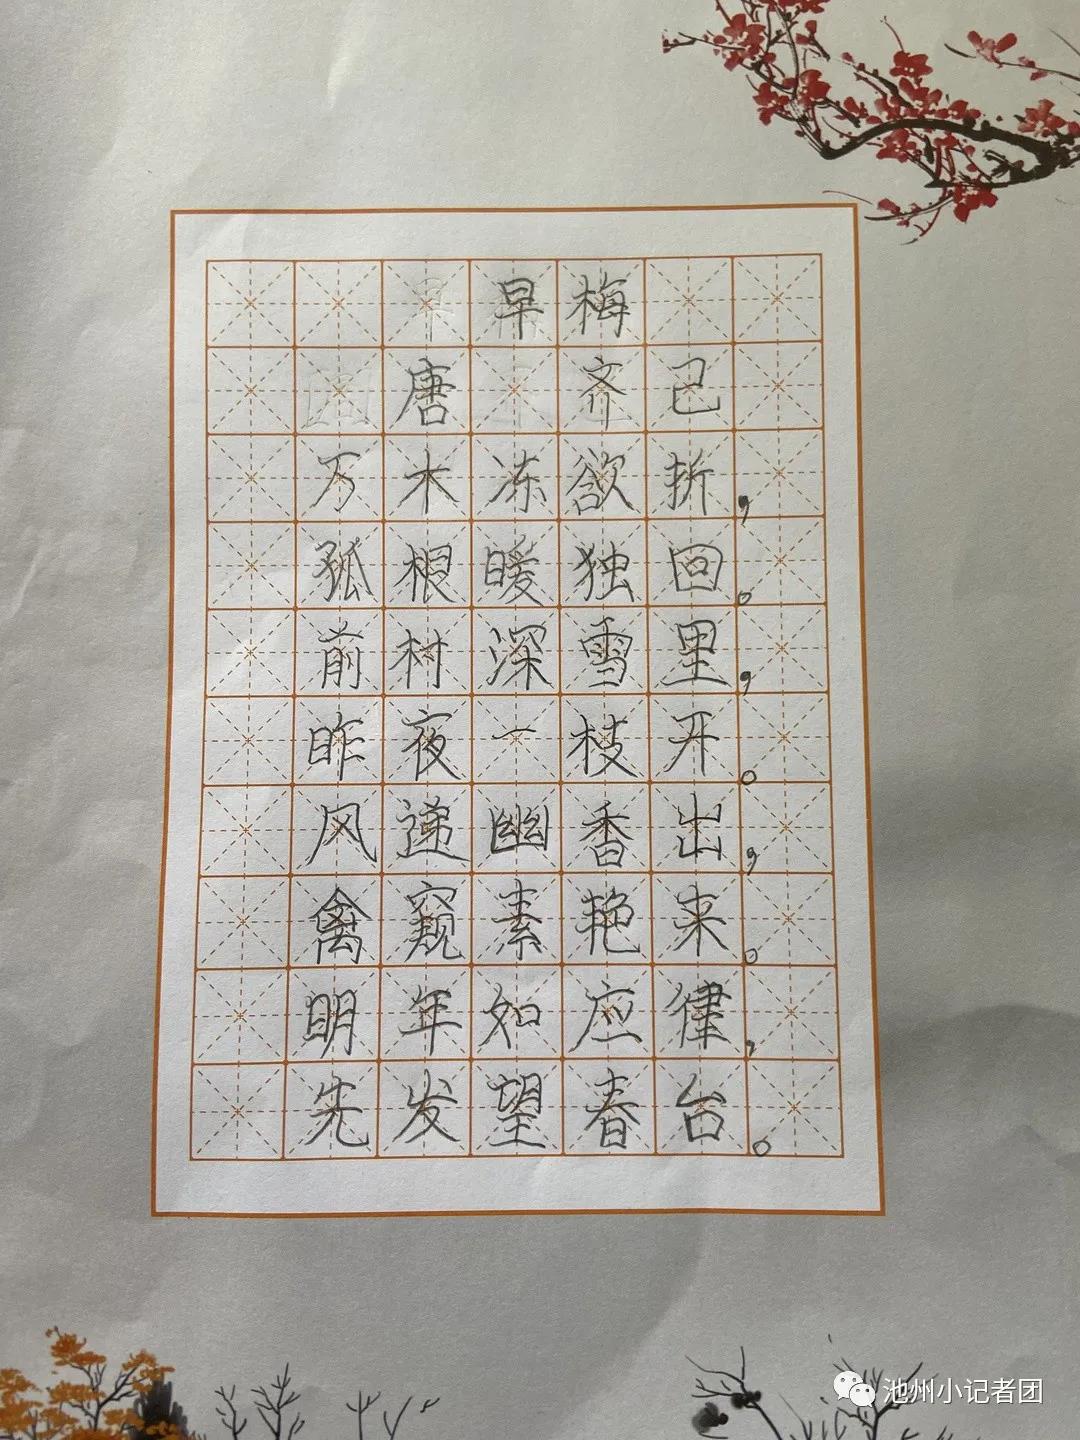 早梅
唐 齐己
万木冻欲折，
孤根暖独回。
前村深雪里，
昨夜一枝开。
风递幽香出，
禽窥素艳来。
明年如应律，
先发望春台。
池州小记者团